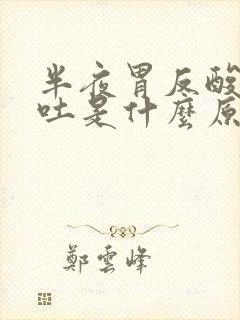 半夜胃反酸
吐是什麼原
鄭雲峰